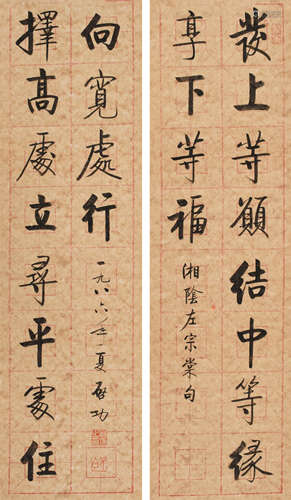 發上等願結中等緣
享下等福
湘陰左宗棠句
擇高處立尋平處住
向寬處行
一九八六年夏
啟功